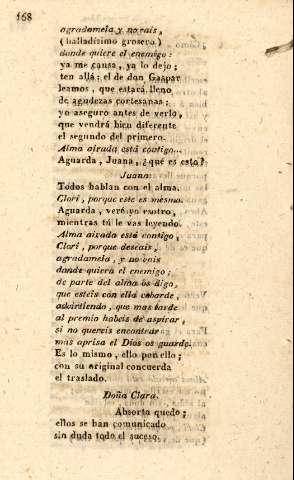 168
agradamela y no rais,
(halladísimo grosero)
donde quiere el enemigo:
ya me cansa, ya lo dejo;
ten allá: el de don Gaspar
leamos, que estará lleno
de agudezas cortesanas;
yo aseguro antes de verlo,
que vendrá bien diferente
el segundo del primero.
Alma airada está contigo...
Aguarda, Juana, ¿qué es esto?
Juana.
Todos hablan con el alma.
Clori, porque este es mesmo.
Aguarda, veré yo esotro,
mientras tú le vas leyendo.
Alma airada está contigo,
Clori, porque deseais,
agradamela, y no
donde quiera el enemigo;
de parte del alma os digo,
que esteis con ella cobarde,
advirtiendo, que mas tarde
al premio habeis de aspirar,
si no quereis encontrar
mas aprisa el Dios os guarde.
Es lo mismo, ello por ello;
con su original concuerda
el traslado.
Doña Clara.
Absorta quedo;
ellos se han comunicado
sin duda todo el suceso,